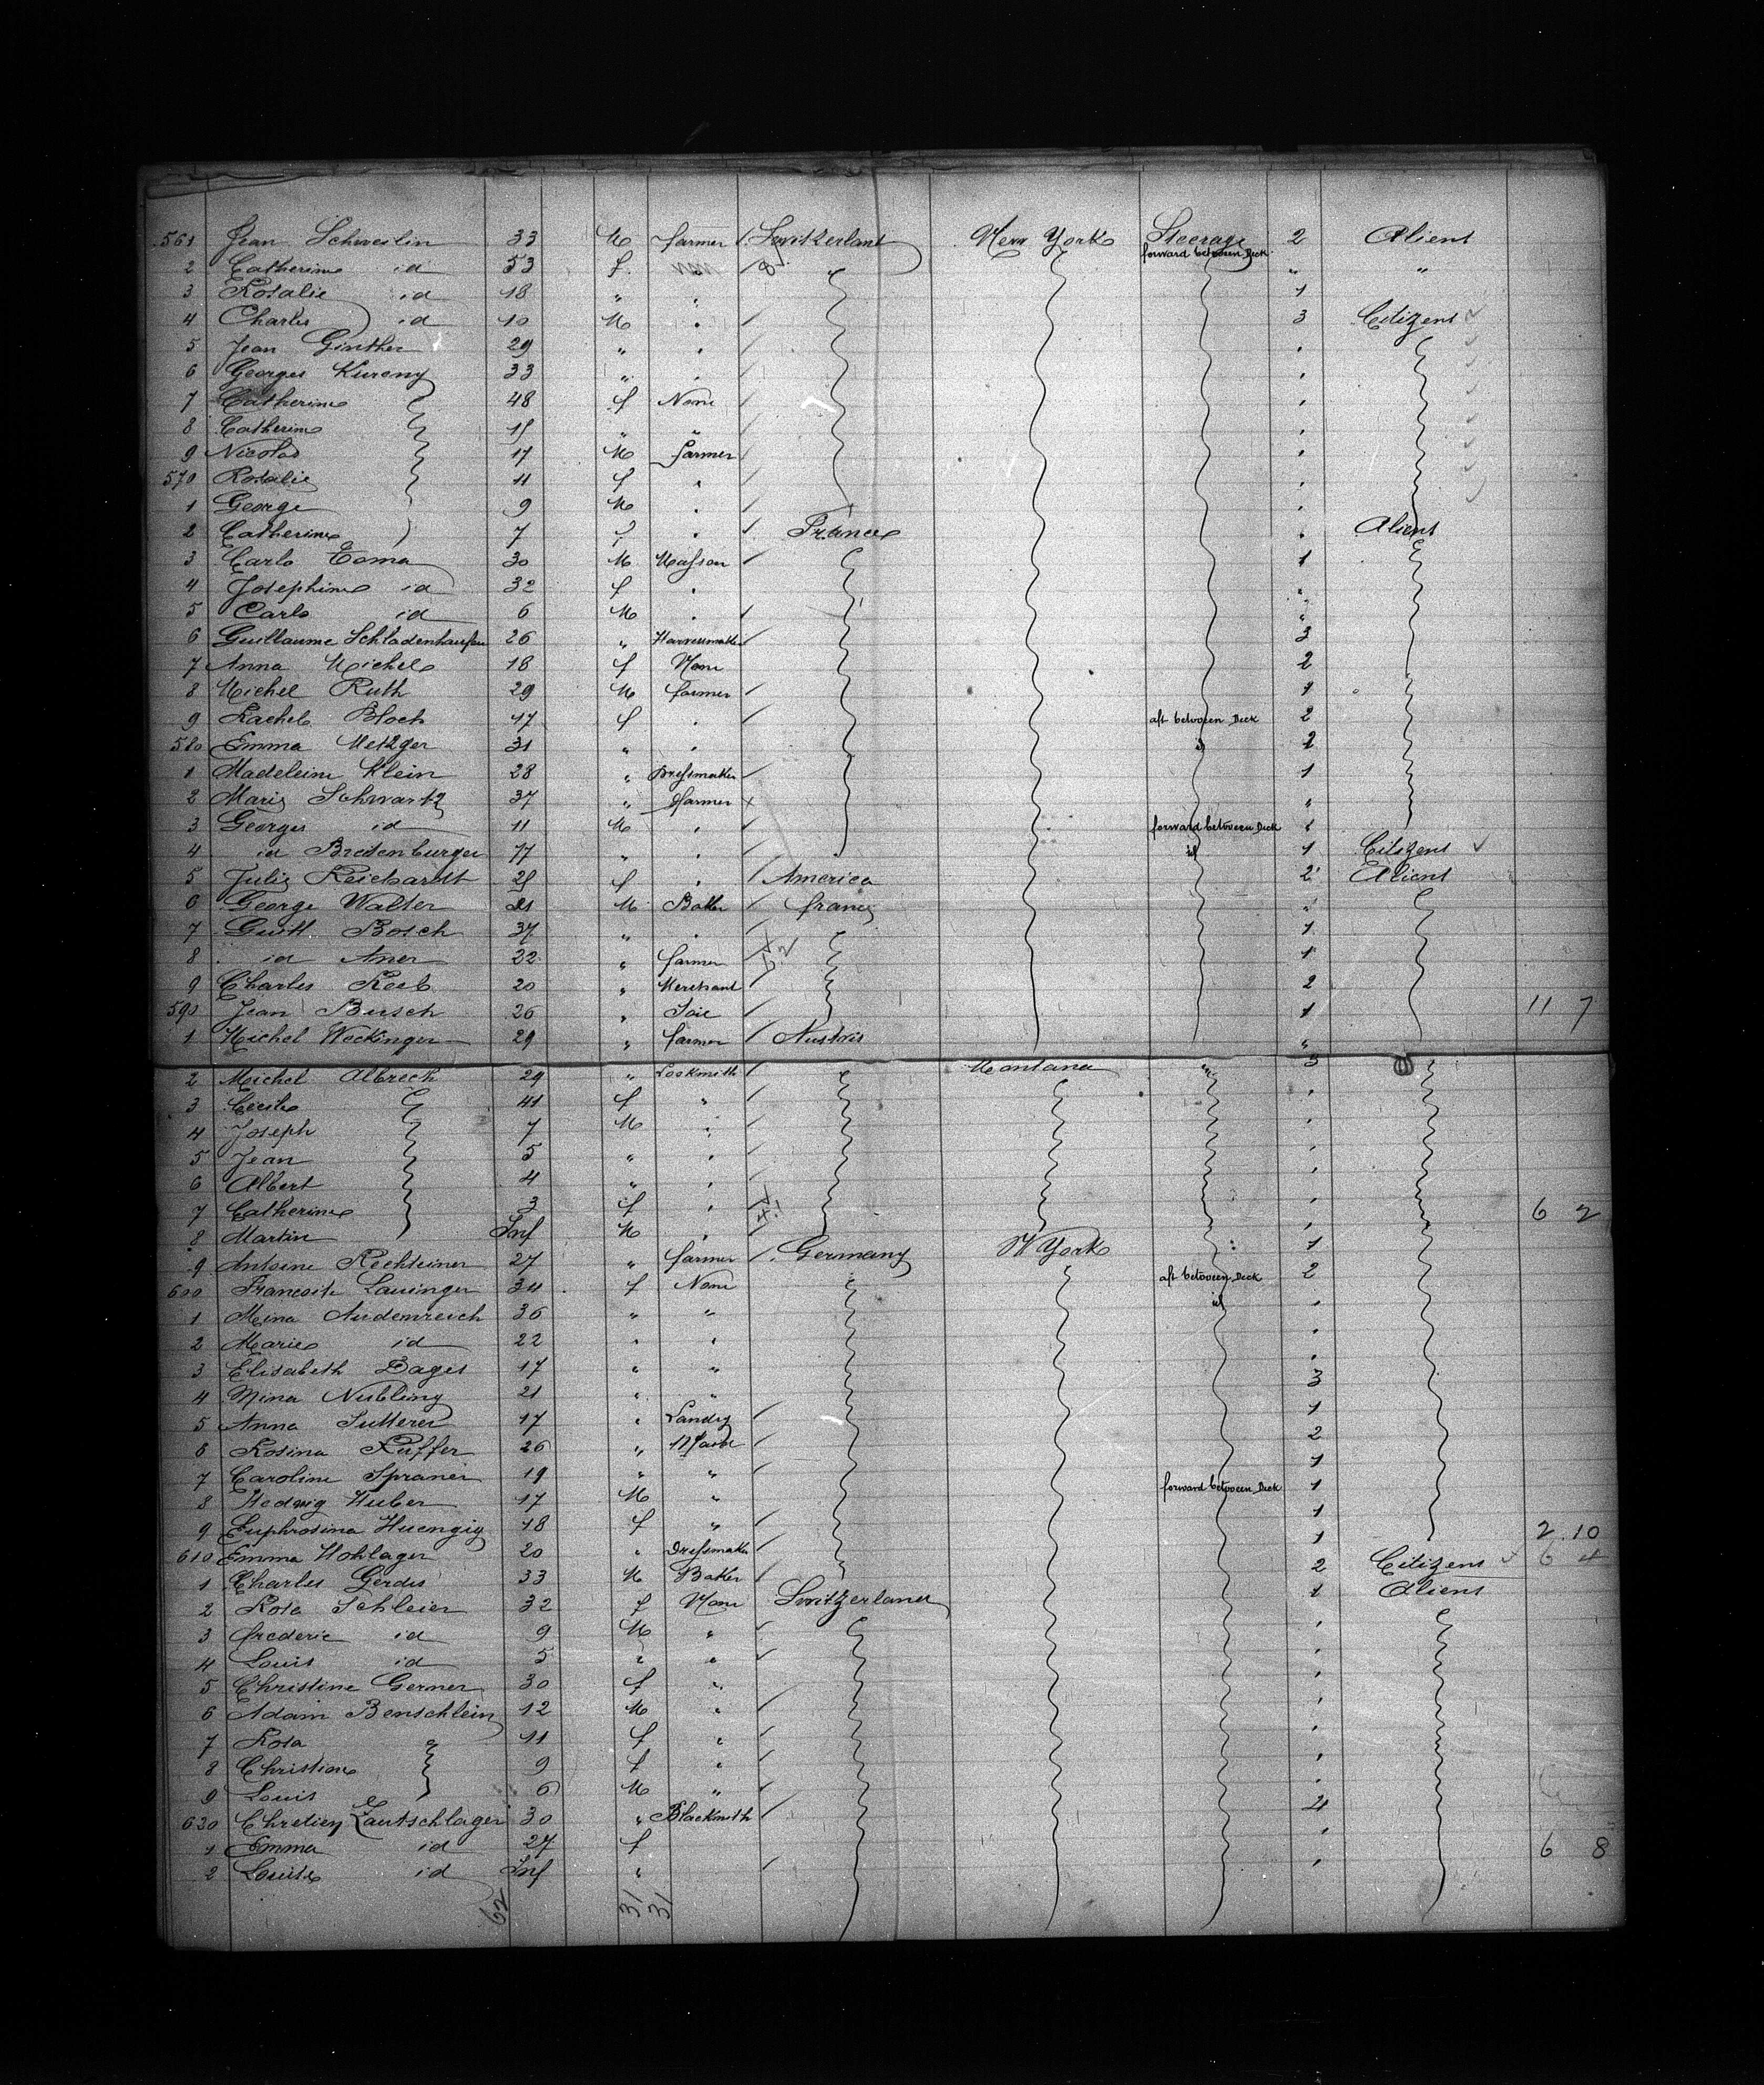 561 Jean Schweslin 33 M farmer Switzerland New York Steerage 2 Alient
forward between Deck
2 Catherine id 53 f. 8 " " "
3 Rosalie id 18 " " 1
4 Charles id 10 M " 3 Citizens
5 Jean Ginther 29 " "
6 Georges Kureny 33 " "
7 Catherine 48 f None
8 Catherine 15 " "
9 Nicolas 17 M farmer
570 Rosalie 11 f "
1 George 9 M "
2 Catherine 7 f " France Alient
3 Carlo Toma 30 M Masson 1
4 Josephine id 32 f "
5 Carlo id 6 M "
6 Guillaume Schladenhaufen 26 " Harnessmaker 3
7 Anna Michel 18 f None 2
8 Michel Ruth 29 M farmer 1
9 Rachel Bloch 17 f " aft between Deck 2
580 Emma Metzger 31 " " id 2
1 Madeleine Klein 28 " Dressmaker 1
2 Marie Schwartz 37 " farmer "
3 Georges id 11 M " forward between Deck 1
4 id Bredenburger 77 " " id 1 Citizens
5 Julie Reichardt 25 f " America 2 Alient
6 George Walter 21 M Baker france "
7 Gustl Bosch 37 " " 1
8 id Aner 22 " farmer 1
9 Charles Roeb 20 " Merchant 2
590 Jean Busch 26 " 1 11 7
1 Michel Weckinger 29 " farmer Austria "
2 Michel Albrech 29 " Locksmith Montana " 3
3 Cecile 41 f "
4 Joseph 7 M "
5 Jean 5 " "
6 Albert 4 " "
7 Catherine 3 f " 6 2
8 Martin Inf M "
9 Antoine Rechteiner 27 " farmer Germany N York 1
600 Francoise Lauinger 34 f None aft between Deck 2
1 Mina Audenreich 36 " " id
2 Marie id 22 " "
3 Elisabeth Dages 17 " "
4 Mina Nubling 21 " " 3
5 Anna Sutterer 17 " Landry 1
6 Rosina Ruffer 26 " 2
7 Caroline Spraner 19 " " 1
8 Hedwig Huber 17 M " forward between Deck 1
9 Euphrosina Huengig 18 f " 1 2.10
610 Emma Hohlager 20 " Dressmaker 1 6 4
1 Charles Gerdis 33 M Baker 2 Citizens
2 Rosa Schleier 32 f None Switzerland 1 Alient
3 frederic id 9 M "
4 Louis id 5 " "
5 Christine Germer 30 f "
6 Adam Benschlein 12 M "
7 Rosa 11 f "
8 Christiane 9 f "
9 Louis 6 M "
620 Chretien Lautschlager 30 " Blacksmith 4
1 Emma id 27 f 6 8
2 Louise id Inf "
62 31 31